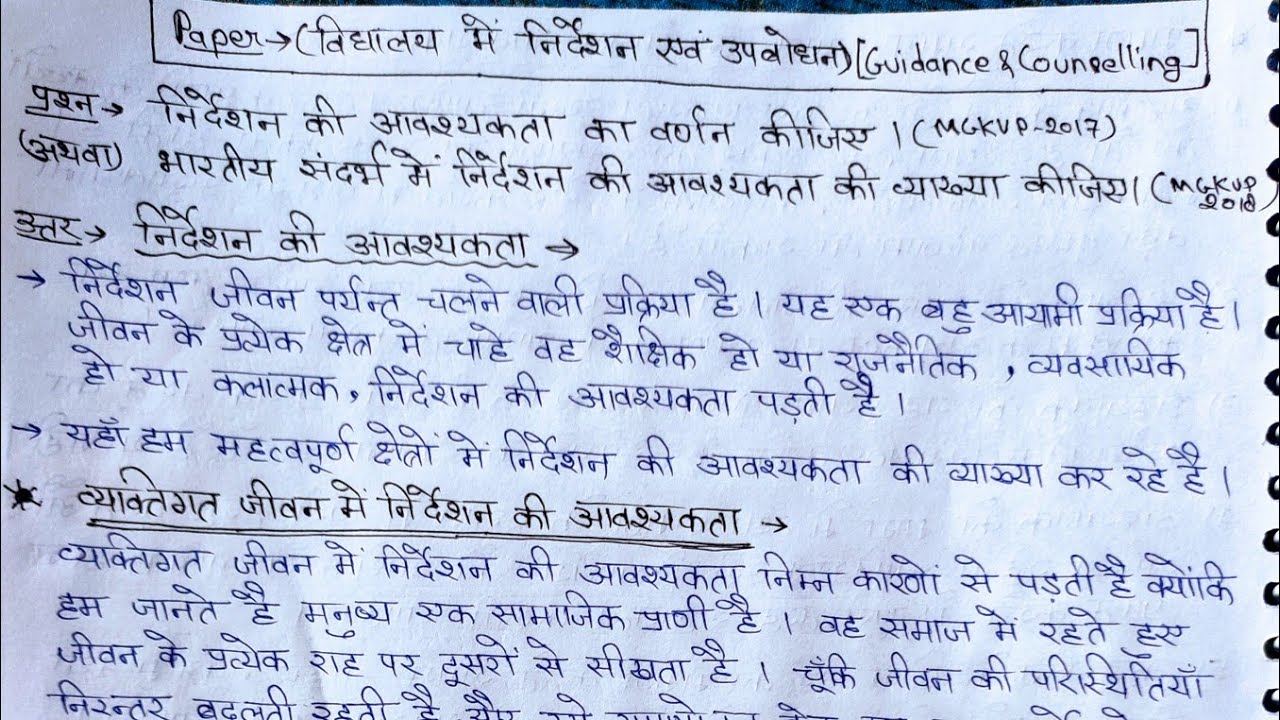 Paper→(विद्यालय में निर्देशन एवं उपबोधन)[Guidance & Counselling]
प्रश्न→ निर्देशन की आवश्यकता का वर्णन कीजिए। (MGKVP-2017)
(अथवा) भारतीय संदर्भ में निर्देशन की आवश्यकता की व्याख्या कीजिए। (MGKVP 2018)
उत्तर→ निर्देशन की आवश्यकता →
→ निर्देशन जीवन पर्यन्त चलने वाली प्रक्रिया है। यह एक बहु आयामी प्रक्रिया है।
जीवन के प्रत्येक क्षेत्र में चाहे वह शैक्षिक हो या राजनैतिक, व्यवसायिक
हो या कलात्मक, निर्देशन की आवश्यकता पड़ती है।
→ यहाँ हम महत्वपूर्ण क्षेत्रों में निर्देशन की आवश्यकता की व्याख्या कर रहे है।
* व्यक्तिगत जीवन में निर्देशन की आवश्यकता →
व्यक्तिगत जीवन में निर्देशन की आवश्यकता निम्न कारणों से पड़ती है क्योंकि
हम जानते है मनुष्य एक सामाजिक प्राणी है। वह समाज में रहते हुए
जीवन के प्रत्येक राह पर दूसरों से सीखता है। चूँकि जीवन की परिस्थितियाँ
निरन्तर बदलती रहती है और